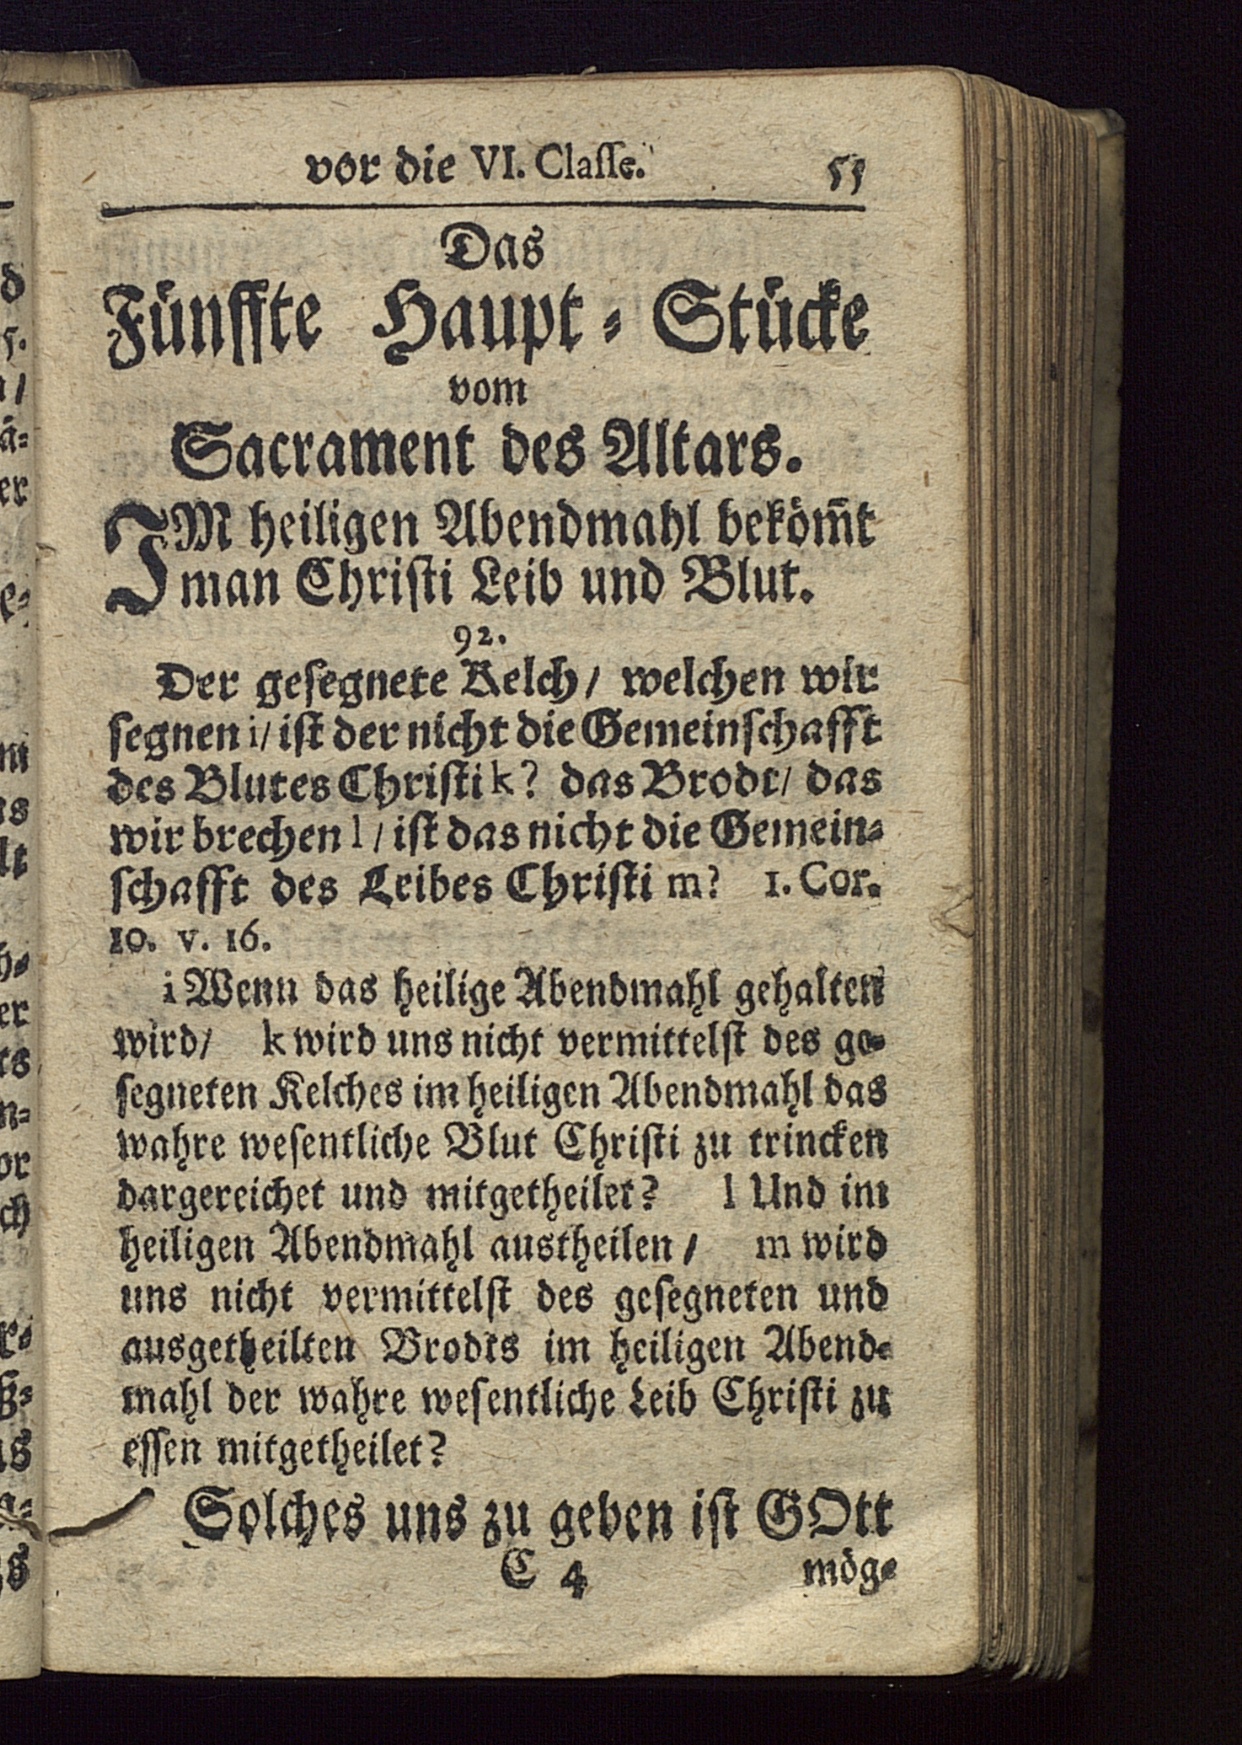 vor die VI. Classe. 55
Das
Fünffte Haupt-Stücke
vom
Sacrament des Altars.
IM heiligen Abendmahl beköm̃t
man Christi Leib und Blut.
92.
Der gesegnete Kelch/ welchen wir
segnen i/ ist der nicht die Gemeinschafft
des Blutes Christi k? das Brodt/ das
wir brechen l/ ist das nicht die Gemein-
schafft des Leibes Christi m? 1. Cor.
10. v. 16.
i Wenn das heilige Abendmahl gehalten
wird/ k wird uns nicht vermittelst des ge-
segneten Kelches im heiligen Abendmahl das
wahre wesentliche Blut Christi zu trincken
dargereichet und mitgetheilet? l Und im
heiligen Abendmahl austheilen/ m wird
uns nicht vermittelst des gesegneten und
ausgetheilten Brodts im heiligen Abend-
mahl der wahre wesentliche Leib Christi zu
essen mitgetheilet?
Solches uns zu geben ist GOtt
C 4 mög-